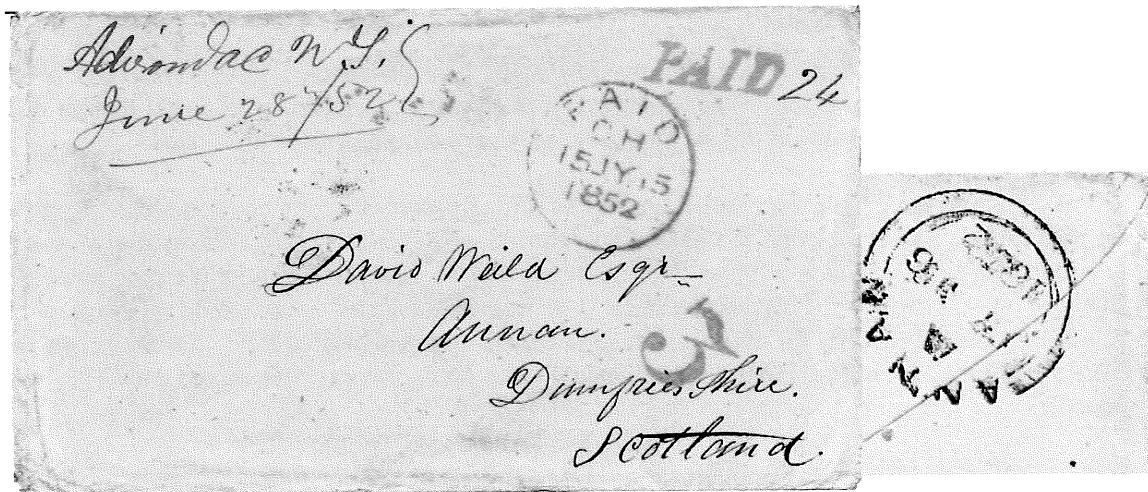 Adirondac N.Y.
June 28/52
PAID 24
PAID
15JY15
1852
David Weild Esqr
Annan.
Dumfries Shire.
Scotland.
3
ANNAN
1852